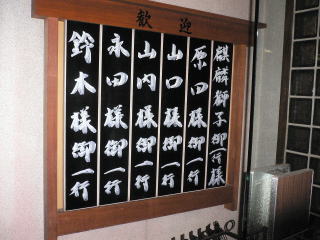 歓迎
麒麟獅子御一行様
原田様御一行
山口様御一行
山内様御一行
永田様御一行
鈴木様御一行